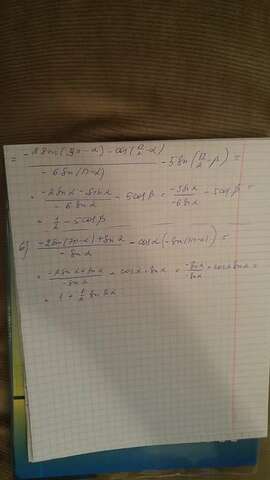 = (-2sin(3π-α) - cos(π/2-α)) / (-6sin(π-α)) - 5sin(π/2-β) =
= (-2sinα - sinα) / (-6sinα) - 5cosβ = (-3sinα) / (-6sinα) - 5cosβ =
= 1/2 - 5cosβ
(-2sin(7π-α)+sinα) / (-sinα) - cosα(-sin(π-α)) =
= (-2sinα+sinα) / (-sinα) + cosα·sinα = (-sinα) / (-sinα) + cosα sinα =
= 1 + 1/2 sin2α